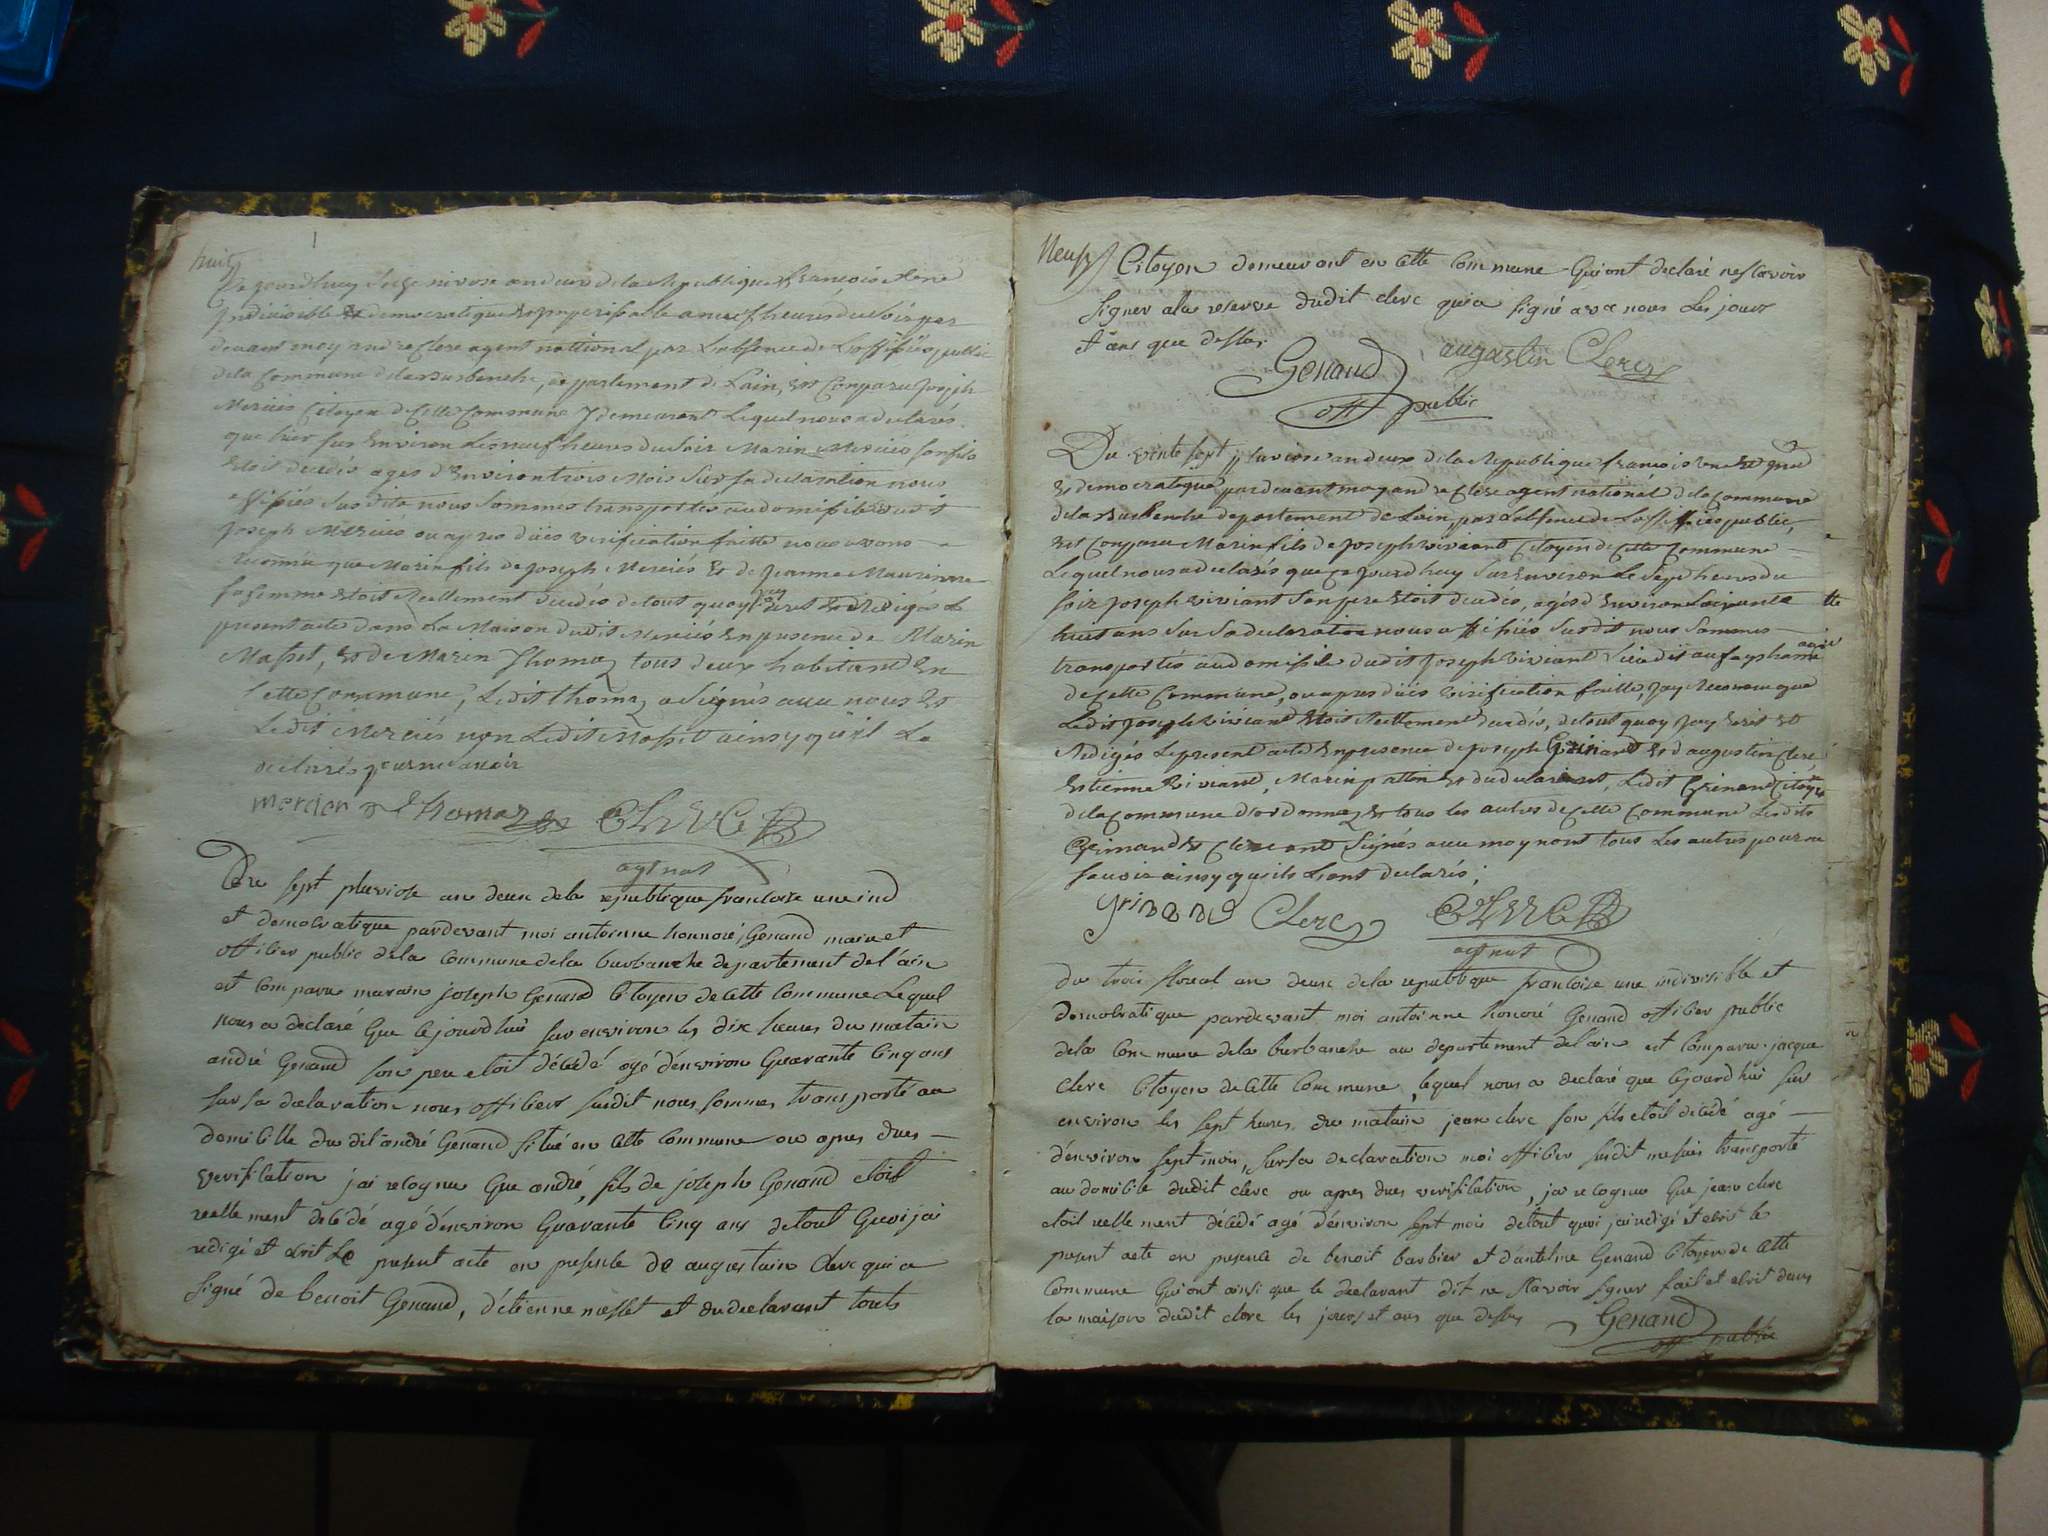 huit
Ce jourdhuy seize nivose an deux de la Republique francoise une
Indivisible Et democratique Et imperissable a neuf heures du soir par
devant moy andre Clerc agent nattional par Labsence de Loffissiés public
de la Commune de la Burbanche, departement de Lain, Est Comparu Joseph
Merciés Citoyen de Cette Commune Y demeurant Lequel nous a declarés
que hier sur Environ Les neuf heures du soir Marin Merciés son fils
Etoit decedés ages d'Environ trois Mois Sur sa declaration nous
offissiés Susdits nous Sommes transportés au domissile dudit
Joseph Merciés ou apres düës verification faitte nous avons
Reconnu que Marin fils de Joseph Merciés Et de Jeanne
sa femme Etoit Reellement decedés de tout quoy jay Ecrit Et Redigés Le
present acte dans La Maison dudit Merciés En presence de Marin
Masset, Et de Marin Thomaz tous deux habitand En
Cette Commune, Ledit thomaz a Signés avec nous Et
Ledit Merciés non Ledit Massét ainsy quil La
declarés pour ne savoir
mercier thomaz CLERC
agt nat
Du sept pluviose an deux de la republique francoise une ind
et democratique pardevant moi antoinne honnoré Genand maire et
officier public de la commune de la burbanche departement de l'ain
est comparu marain joseph Genand Citoyen de Cette Commune Lequel
nous a declaré Que Cejourdhui sur environ les dix heures du matain
andré Genand son pere etoit décédé agé d'environ Quarante Cinq ans
sur sa declaration nous officiers susdit nous sommes transporté au
domicille du dit andré Genand situé en Cette Commune ou apres dues
verification j'ai recognu Que andré, fils de joseph Genand etoit
reellement décédé agé d'environ Quarante Cinq ans detout Quoi j'ai
redigé et ecrit Le present acte en presence de augustain clerc qui a
signé de benoit Genand, d'étienne masset et du declarant touts
Neuf
Citoyen demeurant en Cette Commune Qui ont declaré ne scavoir
signer a la reserve dudit clerc qui a signé avec nous Les jours
et ans que dessus
Genand augustin Clerc
off public
Du vinte sept pluviose an deux de la Republique francoise une Et ind
Et democratique pardevant moy andre Clerc agent national de la Commune
de la Burbenche departement de Lain, par Labsence de Loffissiés public,
Est Comparu Marin fils de Joseph viviant Citoyen de Cette Commune
Lequel nous a declarés que Cejourdhuy Sur Environ Le Sept heures du
soir Joseph viviant Son pere Etoit decedés, agés d'Environ Soixante
huit ans Sur Sa declaration nous offissiés susdit nous Sommes
transportés au domissile dudit Joseph viviant
de Cette Commune, ou apres düës verification faitte, Jay Reconnu que
Ledit Joseph viviant Etoit Reellement decedés, de tout quoy Jay Ecrit Et
Redigés Le present acte En presence de Joseph Grinand Et d'augustin Clerc,
Estienne Viviand, Marin patton Et du declarant, Ledit Grinand Citoyen
de la Commune d'ordonnaz Et tous les autres de Cette Commune Lesdits
Grinand Et Clerc ont Signés avec moy nont tous Les autres pour ne
savoir ainsy quils Lont declarés,
grinand Clerc CLERC
agt nat
du trois floreal an deux de la republique francoise une indivisible et
democratique pardevant moi antoinne honoré Genand officier public
de la Commune de la burbanche au departement delain est Comparu jacque
clerc Citoyen de Cette Commune, lequel nous a declaré que Cejourd'hui sur
environ les sept heures du matain jean clerc son fils etoit décédé agé
d'environ sept mois, sur sa declaration moi officier susdit me suis transporté
au domicile dudit clerc ou apres dues verification, j'ai recognu Que jean clerc
etoit reellement décédé agé d'environ sept mois detout quoi j'ai redigé et ecrit le
present acte en presence de benoit barbier et d'antelme Genand Citoyen de Cette
Commune Qui ont ainsi que le declarant dit ne scavoir signer fait et ecrit dans
la maison dudit clerc les jours et ans que dessus Genand
off public